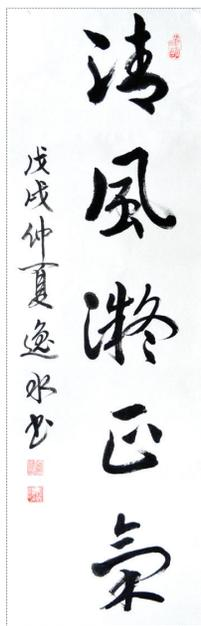 清風凝正氣
戊戌仲夏逸水书